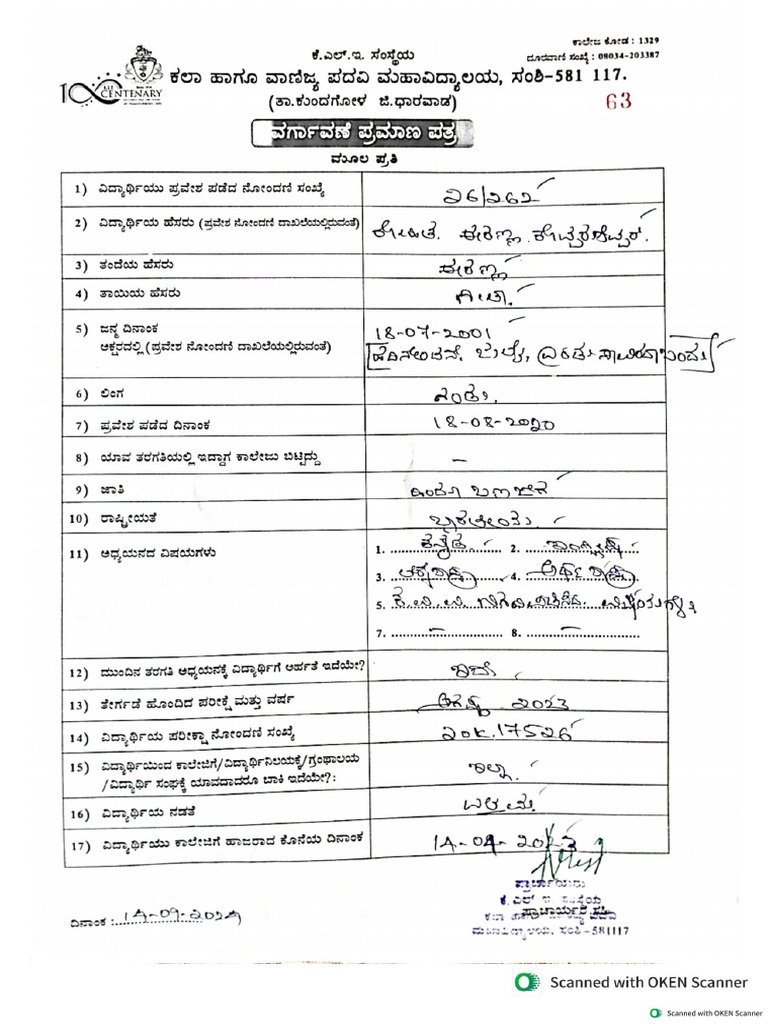 ಕಾಲೇಜ ಕೋಡ : 1329
ಕೆ.ಎಲ್.ಇ. ಸಂಸ್ಥೆಯ
ದೂರವಾಣಿ ಸಂಖ್ಯೆ : 08034-203387
KLE
CENTENARY
ಕಲಾ ಹಾಗೂ ವಾಣಿಜ್ಯ ಪದವಿ ಮಹಾವಿದ್ಯಾಲಯ, ಸಂಶಿ-581 117.
(ತಾ.ಕುಂದಗೋಳ ಜಿ.ಧಾರವಾಡ)
63
ವರ್ಗಾವಣೆ ಪ್ರಮಾಣ ಪತ್ರ
ಮೂಲ ಪ್ರತಿ
1) ವಿದ್ಯಾರ್ಥಿಯು ಪ್ರವೇಶ ಪಡೆದ ನೋಂದಣಿ ಸಂಖ್ಯೆ ೨೮/೨೮೭
2) ವಿದ್ಯಾರ್ಥಿಯ ಹೆಸರು (ಪ್ರವೇಶ ನೋಂದಣಿ ದಾಖಲೆಯಲ್ಲಿರುವಂತೆ) ಈರಣ್ಣ
3) ತಂದೆಯ ಹೆಸರು ಈರಣ್ಣ
4) ತಾಯಿಯ ಹೆಸರು
5) ಜನ್ಮ ದಿನಾಂಕ 18-07-2001
ಅಕ್ಷರದಲ್ಲಿ (ಪ್ರವೇಶ ನೋಂದಣಿ ದಾಖಲೆಯಲ್ಲಿರುವಂತೆ) ಹದಿನೆಂಟನೆ, ಜುಲೈ, ಎರಡು ಸಾವಿರದಾ ಒಂದು
6) ಲಿಂಗ ಗಂಡು.
7) ಪ್ರವೇಶ ಪಡೆದ ದಿನಾಂಕ 18-08-2020
8) ಯಾವ ತರಗತಿಯಲ್ಲಿ ಇದ್ದಾಗ ಕಾಲೇಜು ಬಿಟ್ಟಿದ್ದು –
9) ಜಾತಿ ಹಿಂದೂ ಬಣಜಿಗ
10) ರಾಷ್ಟ್ರೀಯತೆ ಭಾರತೀಯ
11) ಅಧ್ಯಯನದ ವಿಷಯಗಳು 1. ಕನ್ನಡ 2. ಇಂಗ್ಲೀಷ್
3. 4. ಅರ್ಥ ಶಾಸ್ತ್ರ
5. ವಿಷಯಗಳು
7. – 8. –
12) ಮುಂದಿನ ತರಗತಿ ಅಧ್ಯಯನಕ್ಕೆ ವಿದ್ಯಾರ್ಥಿಗೆ ಅರ್ಹತೆ ಇದೆಯೇ? ಇದೆ
13) ತೇರ್ಗಡೆ ಹೊಂದಿದ ಪರೀಕ್ಷೆ ಮತ್ತು ವರ್ಷ ಆಗಷ್ಟ 2023
14) ವಿದ್ಯಾರ್ಥಿಯ ಪರೀಕ್ಷಾ ನೋಂದಣಿ ಸಂಖ್ಯೆ 20K.17526
15) ವಿದ್ಯಾರ್ಥಿಯಿಂದ ಕಾಲೇಜಿಗೆ/ವಿದ್ಯಾರ್ಥಿನಿಲಯಕ್ಕೆ/ಗ್ರಂಥಾಲಯ ಇಲ್ಲಾ.
/ವಿದ್ಯಾರ್ಥಿ ಸಂಘಕ್ಕೆ ಯಾವದಾದರೂ ಬಾಕಿ ಇದೆಯೇ?:
16) ವಿದ್ಯಾರ್ಥಿಯ ನಡತೆ ಉತ್ತಮ
17) ವಿದ್ಯಾರ್ಥಿಯು ಕಾಲೇಜಿಗೆ ಹಾಜರಾದ ಕೊನೆಯ ದಿನಾಂಕ
ಪ್ರಾಚಾರ್ಯರು
ಕೆ.ಎಲ್ ಇ ಸಂಸ್ಥೆಯ
ದಿನಾಂಕ :
ಮಹಾವಿದ್ಯಾಲಯ, ಸಂಶಿ-581117
Scanned with OKEN Scanner
Scanned with OKEN Scanner